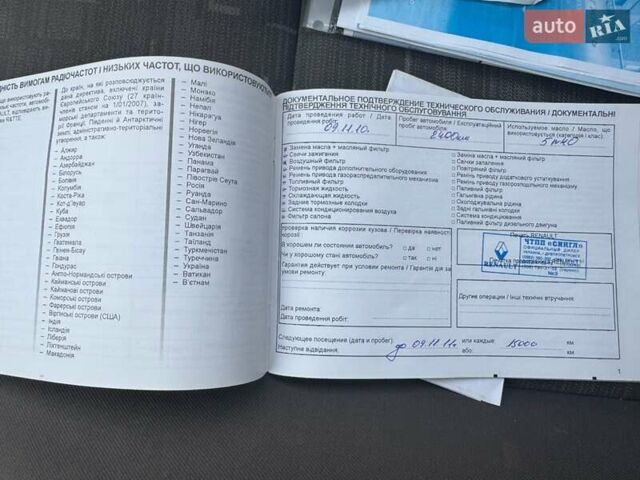 auto RIA .com
НІСТЬ ВИМОГАМ РАДІОЧАСТОТ І НИЗЬКИХ ЧАСТОТ, ЩО ВИКОРИСТОВУЮТЬ
До країн, на які розповсюджується
дана директива, включені країни
Європейського Союзу (27 країн-
членів станом на 1/01/2007), за-
морські департаменти та терито-
рії Франції, Південні й Антарктичні
землі, адміністративно-територіальні
утворення, а також:
– Алжир
– Андорра
– Азербайджан
– Білорусь
– Болівія
– Колумбія
– Коста-Ріка
– Кот-д'Івуар
– Куба
– Еквадор
– Ефіопія
– Грузія
– Гватемала
– Гвінея-Бісау
– Гвіана
– Гондурас
– Англо-Нормандські острови
– Кайманські острови
– Канарські острови
– Коморські острови
– Фарерські острови
– Віргінські острови (США)
– Індія
– Ісландія
– Ліберія
– Ліхтенштейн
– Македонія
– Малі
– Монако
– Намібія
– Непал
– Нікарагуа
– Нігер
– Норвегія
– Нова Зеландія
– Уганда
– Узбекистан
– Панама
– Парагвай
– Півострів Сеута
– Росія
– Руанда
– Сан-Марино
– Сальвадор
– Судан
– Швейцарія
– Танзанія
– Таїланд
– Туркменістан
– Туреччина
– Україна
– Ватикан
– В'єтнам
ДОКУМЕНТАЛЬНОЕ ПОДТВЕРЖДЕНИЕ ТЕХНИЧЕСКОГО ОБСЛУЖИВАНИЯ / ДОКУМЕНТАЛЬНІ
ПІДТВЕРДЖЕННЯ ТЕХНІЧНОГО ОБСЛУГОВУВАННЯ
Дата проведения работ / Дата
проведення робіт:
09.11.10.
Пробег автомобиля / Експлуатаційний
пробіг автомобіля:
8400км
Используемое масло / Масло, що
використовується (категорія і клас):
5w40
Замена масла + масляный фильтр
Свечи зажигания
Воздушный фильтр
Ремень привода дополнительного оборудования
Ремень привода газораспределительного механизма
Топливный фильтр
Тормозная жидкость
Охлаждающая жидкость
Задние тормозные колодки
Система кондиционирования воздуха
Фильтр салона
Заміна масла + масляний фільтр
Свічки запалення
Повітряний фільтр
Ремінь приводу додаткового устаткування
Ремінь приводу газорозподільного механізму
Паливний фільтр
Гальмівна рідина
Охолоджувальна рідина
Задні гальмівні колодки
Система кондиціювання
Паливний фільтр дизельного двигуна
Проверка наличия коррозии кузова / Перевірка наявності
корозії:
В хорошем ли состоянии автомобиль? да нет
Чи у хорошому стані автомобіль? так ні
Гарантия действует при условии ремонта / Гарантія діє за
умови ремонту:
Дата ремонта:
Дата проведення робіт:
Печать RENAULT
RENAULT
ЧТПП «СИНГЛ»
ОФИЦИАЛЬНЫЙ ДИЛЕР
№3
Другие операции / Інші технічні втручання:
Следующее посещение (дата и пробег)
Наступне відвідання:
до 09.11.11г
или каждые
або:
15000
км
км
1